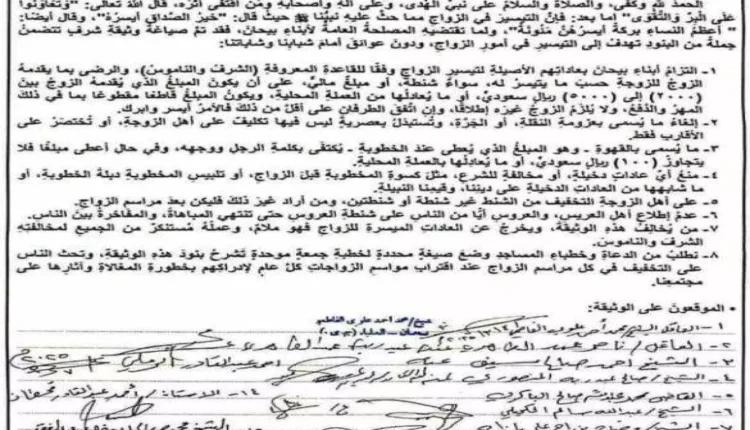 الحمدُ للهِ وكفَى، والصلاةُ والسلامُ على نبيِّ الهُدَى، وعلى آلهِ وأصحابهِ ومن اقتفى أثرَه، قال اللهُ تعالى: "وَتَعَاوَنُوا
عَلَى الْبِرِّ وَالتَّقْوَى" إما بعد: فإنَّ التيسيرَ في الزواجِ مما حثَّ عليهِ نبيُّنا ﷺ حيثُ قال: "خيرُ الصَّداقِ أيسرُهُ"، وقال أيضاً:
"أعظمُ النساءِ بركةً أيسرُهُنَّ مَئُونَةً"، ولما تقتضيهِ المصلحةُ العامةُ لأبناءِ بيحانَ، فقد تمَّ صياغةُ وثيقةِ شرفٍ تتضمنُ
جملةً من البنودِ تهدفُ إلى التيسيرِ في أمورِ الزواجِ، ودون عوائقَ أمامَ شبابِنا وشاباتِنا:
١- التزامُ أبناءِ بيحانَ بعاداتِهم الأصيلةِ لتيسيرِ الزواجِ وفقاً للقاعدةِ المعروفةِ (الشرفِ والناموسِ)، والرضى بما يقدمهُ
الزوجُ للزوجةِ حسبَ ما يتيسرُ له، سواءً شنطةً، أو مبلغٌ ماليٌّ، على أن يكونَ المبلغُ الذي يُقدمهُ الزوجُ بينَ
(٢٠٠٠) إلى (٥٠٠٠) ريالٍ سعوديٍّ، أو ما يُعادلُها من العملةِ المحليةِ، ويكونُ المبلغُ قاطعاً مقطوعاً بما في ذلكَ
المهرُ والدَّفعُ، ولا يُلزمُ الزوجُ غيرَه إطلاقاً، وإن اتفقَ الطرفانِ على أقلَّ من ذلكَ فالأمرُ أيسرُ وأبركُ.
٢- إلغاءُ ما يُسمى بعزومةِ النَّقلةِ، أو الخِزَةِ، وتُستبدلُ بعصريةٍ ليس فيها تكاليفُ على أهلِ الزوجةِ، أو تُختصرُ على
الأقاربِ فقط.
٣- ما يُسمى بالقهوةِ - وهو المبلغُ الذي يُعطى عندَ الخطوبةِ - يُكتفى بكلمةِ الرجلِ ووجههِ، وفي حالِ أعطى مبلغاً فلا
يتجاوزُ (١٠٠) ريالٍ سعوديٍّ، أو ما يُعادلُها بالعملةِ المحليةِ.
٤- منعُ أيِّ عاداتٍ دخيلةٍ، أو مخالفةٍ للشرعِ، مثلَ كسوةِ المخطوبةِ قبلَ الزواجِ، أو تلبيسِ المخطوبةِ دبلةَ الخطوبةِ، أو
ما شابهها من العاداتِ الدخيلةِ على دينِنا، وقيمِنا النبيلةِ.
٥- على أهلِ الزوجةِ التخفيفُ من الشنطِ غيرَ شنطةٍ أو شنطتينِ، ومن أرادَ غيرَ ذلكَ فليكن بعدَ مراسمِ الزواجِ.
٦- عدمُ إطلاعِ أهلِ العريسِ، والعروسِ أيًّا من الناسِ على شنطةِ العروسِ حتى تنتهي المباهاةُ، والمفاخرةُ بينَ الناسِ.
٧- من يُخالفُ هذهِ الوثيقةَ، ويخرجُ عن العاداتِ الميسرةِ للزواجِ فهو ملامٌ، وعملُه مُستنكرٌ من الجميعِ لمخالفتِهِ
الشرفَ والناموسَ.
٨- نطلبُ من الدعاةِ وخطباءِ المساجدِ وضعَ صيغةٍ محددةٍ لخطبةِ جمعةٍ موحدةٍ تَشرحُ بنودَ هذهِ الوثيقةِ، وتحثُّ الناسَ
على التخفيفِ في كلِّ مراسمِ الزواجِ عندَ اقترابِ مواسمِ الزواجاتِ كلَّ عامٍ لإدراكِهم بخطورةِ المغالاةِ وآثارِها على
مجتمعِنا.
• الموقعونَ على الوثيقةِ:
شيخ/محمد احمد علوي الفاطمي
بيحان - العليا
١- العاقل الشيخ محمد أحمد علوي الفاطمي
٢- العاقل / ناصر
٣- الشيخ / أحمد صالح سيف
٤- الشيخ / صالح عبدربه المنصوري
٥- القاضي محمد
١٤- الأستاذ / أحمد عبدالقادر
٦- الشيخ / عبدالله سالم
٧- الشيخ /